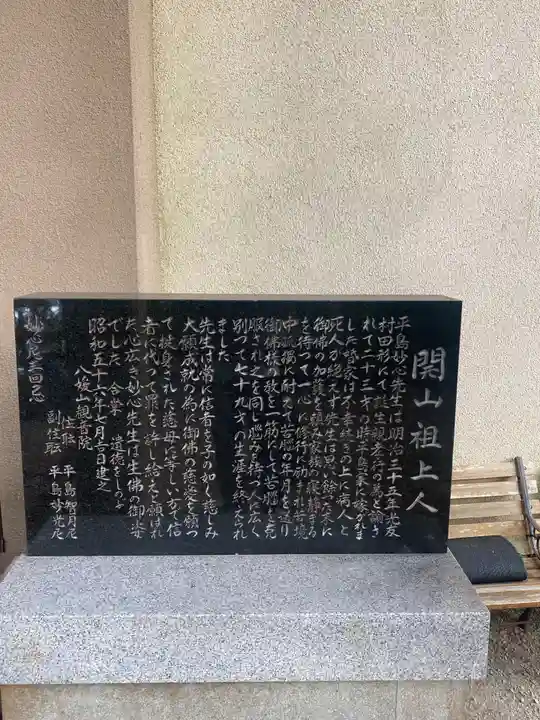 開山祖上人
平島妙心先生は明治三十五年光友
村田形にて誕生親孝行の為と願き
れて二十三才の時平島家に嫁がれま
した婚家は不幸続きの上に病人と
死人が絶えず先生は思い餘った末に
御佛の加護を頼み家族の寝静まる
を待って一心に修行に励まれ苦境
中孤独に耐えて苦悩の年月を送り
御佛様の教を一筋にして苦悩を克
服され之を同じ悩みを持つ人に広く
別って七十九才の生涯を終えられ
ました
先生は常に信者を子の如く慈しみ
大願成就の為に御佛の慈悲を願っ
て捉身された慈母に等しい方で信
者に代って罪を許し給えと願はれ
た心広き妙心先生は生佛の御姿
でした 合掌 遺徳をしのぶ
昭和五十六年七月吉日建之
八媛山観音院
住職 平島智月尼
副住職 平島妙光尼
妙心尼三回忌